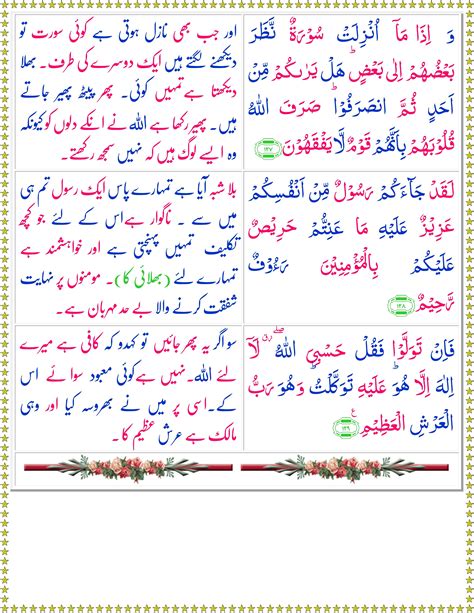 وَ اِذَا مَآ اُنْزِلَتْ سُوْرَةٌ نَّظَرَ
بَعْضُهُمْ اِلٰى بَعْضٍ هَلْ يَرٰىكُمْ مِّنْ
اَحَدٍ ثُمَّ انْصَرَفُوْا صَرَفَ اللّٰهُ
قُلُوْبَهُمْ بِاَنَّهُمْ قَوْمٌ لَّا يَفْقَهُوْنَ ﴿۱۲۷﴾
اور جب بھی نازل ہوتی ہے کوئی سورت تو
دیکھنے لگتے ہیں ایک دوسرے کی طرف۔ بھلا
دیکھتا ہے تمہیں کوئی۔ پھر پیٹھ پھیر جاتے
ہیں۔ پھیر رکھا ہے اللہ نے انکے دلوں کو کیونکہ
وہ ایسے لوگ ہیں کہ نہیں سمجھ رکھتے۔
لَقَدْ جَآءَكُمْ رَسُوْلٌ مِّنْ اَنْفُسِكُمْ
عَزِيْزٌ عَلَيْهِ مَا عَنِتُّمْ حَرِيْصٌ
عَلَيْكُمْ بِالْمُؤْمِنِيْنَ رَءُوْفٌ
رَّحِيْمٌ ﴿۱۲۸﴾
بلا شبہ آیا ہے تمہارے پاس ایک رسول تم ہی
میں سے ۔ ناگوار ہے اس کے لئے جو کچھ
تکلیف تمہیں پہنچتی ہے اور خواہشمند ہے
تمہارے لئے (بھلائی کا)۔ مومنوں پر نہایت
شفقت کرنے والا بے حد مہربان ہے۔
فَاِنْ تَوَلَّوْا فَقُلْ حَسْبِيَ اللّٰهُ ۖ لَآ
اِلٰهَ اِلَّا هُوَ ؕ عَلَيْهِ تَوَكَّلْتُ وَهُوَ رَبُّ
الْعَرْشِ الْعَظِيْمِ ﴿۱۲۹﴾
سو اگر یہ پھر جائیں تو کہدو کہ کافی ہے میرے
لئے اللہ۔ نہیں ہے کوئی معبود سوائے اس
کے۔ اسی پر میں نے بھروسہ کیا اور وہی
مالک ہے عرش عظیم کا ۔